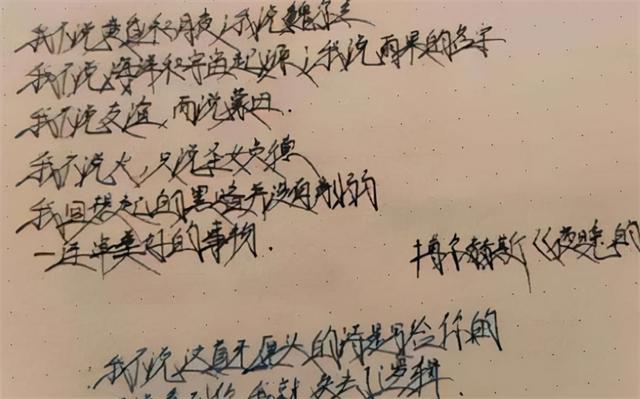 我不说黄昏和月夜，我说魏尔兰
我不说海洋和宇宙起源，我说雨果的名字
我不说友谊，而说蒙田.
我不说火，只说圣女贞德
我回想起的黑暗并没有削弱
一连串美好的事物.
博尔赫斯《夜晚的
我不说这真无厘头的诗是写给你的
我就失去了逻辑.